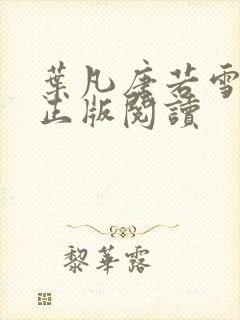 葉凡唐若雪
正版閱讀
黎華露